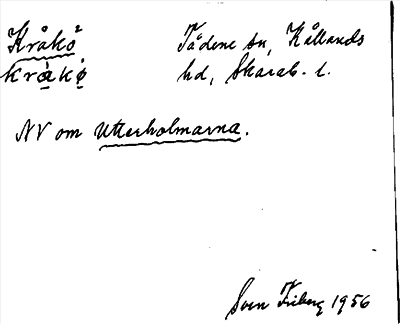 Kråkö² Tådene sn, Kållands
kråkö hd, Skarab. l.
NV om Utterholmarna.
Sven Friberg 1956